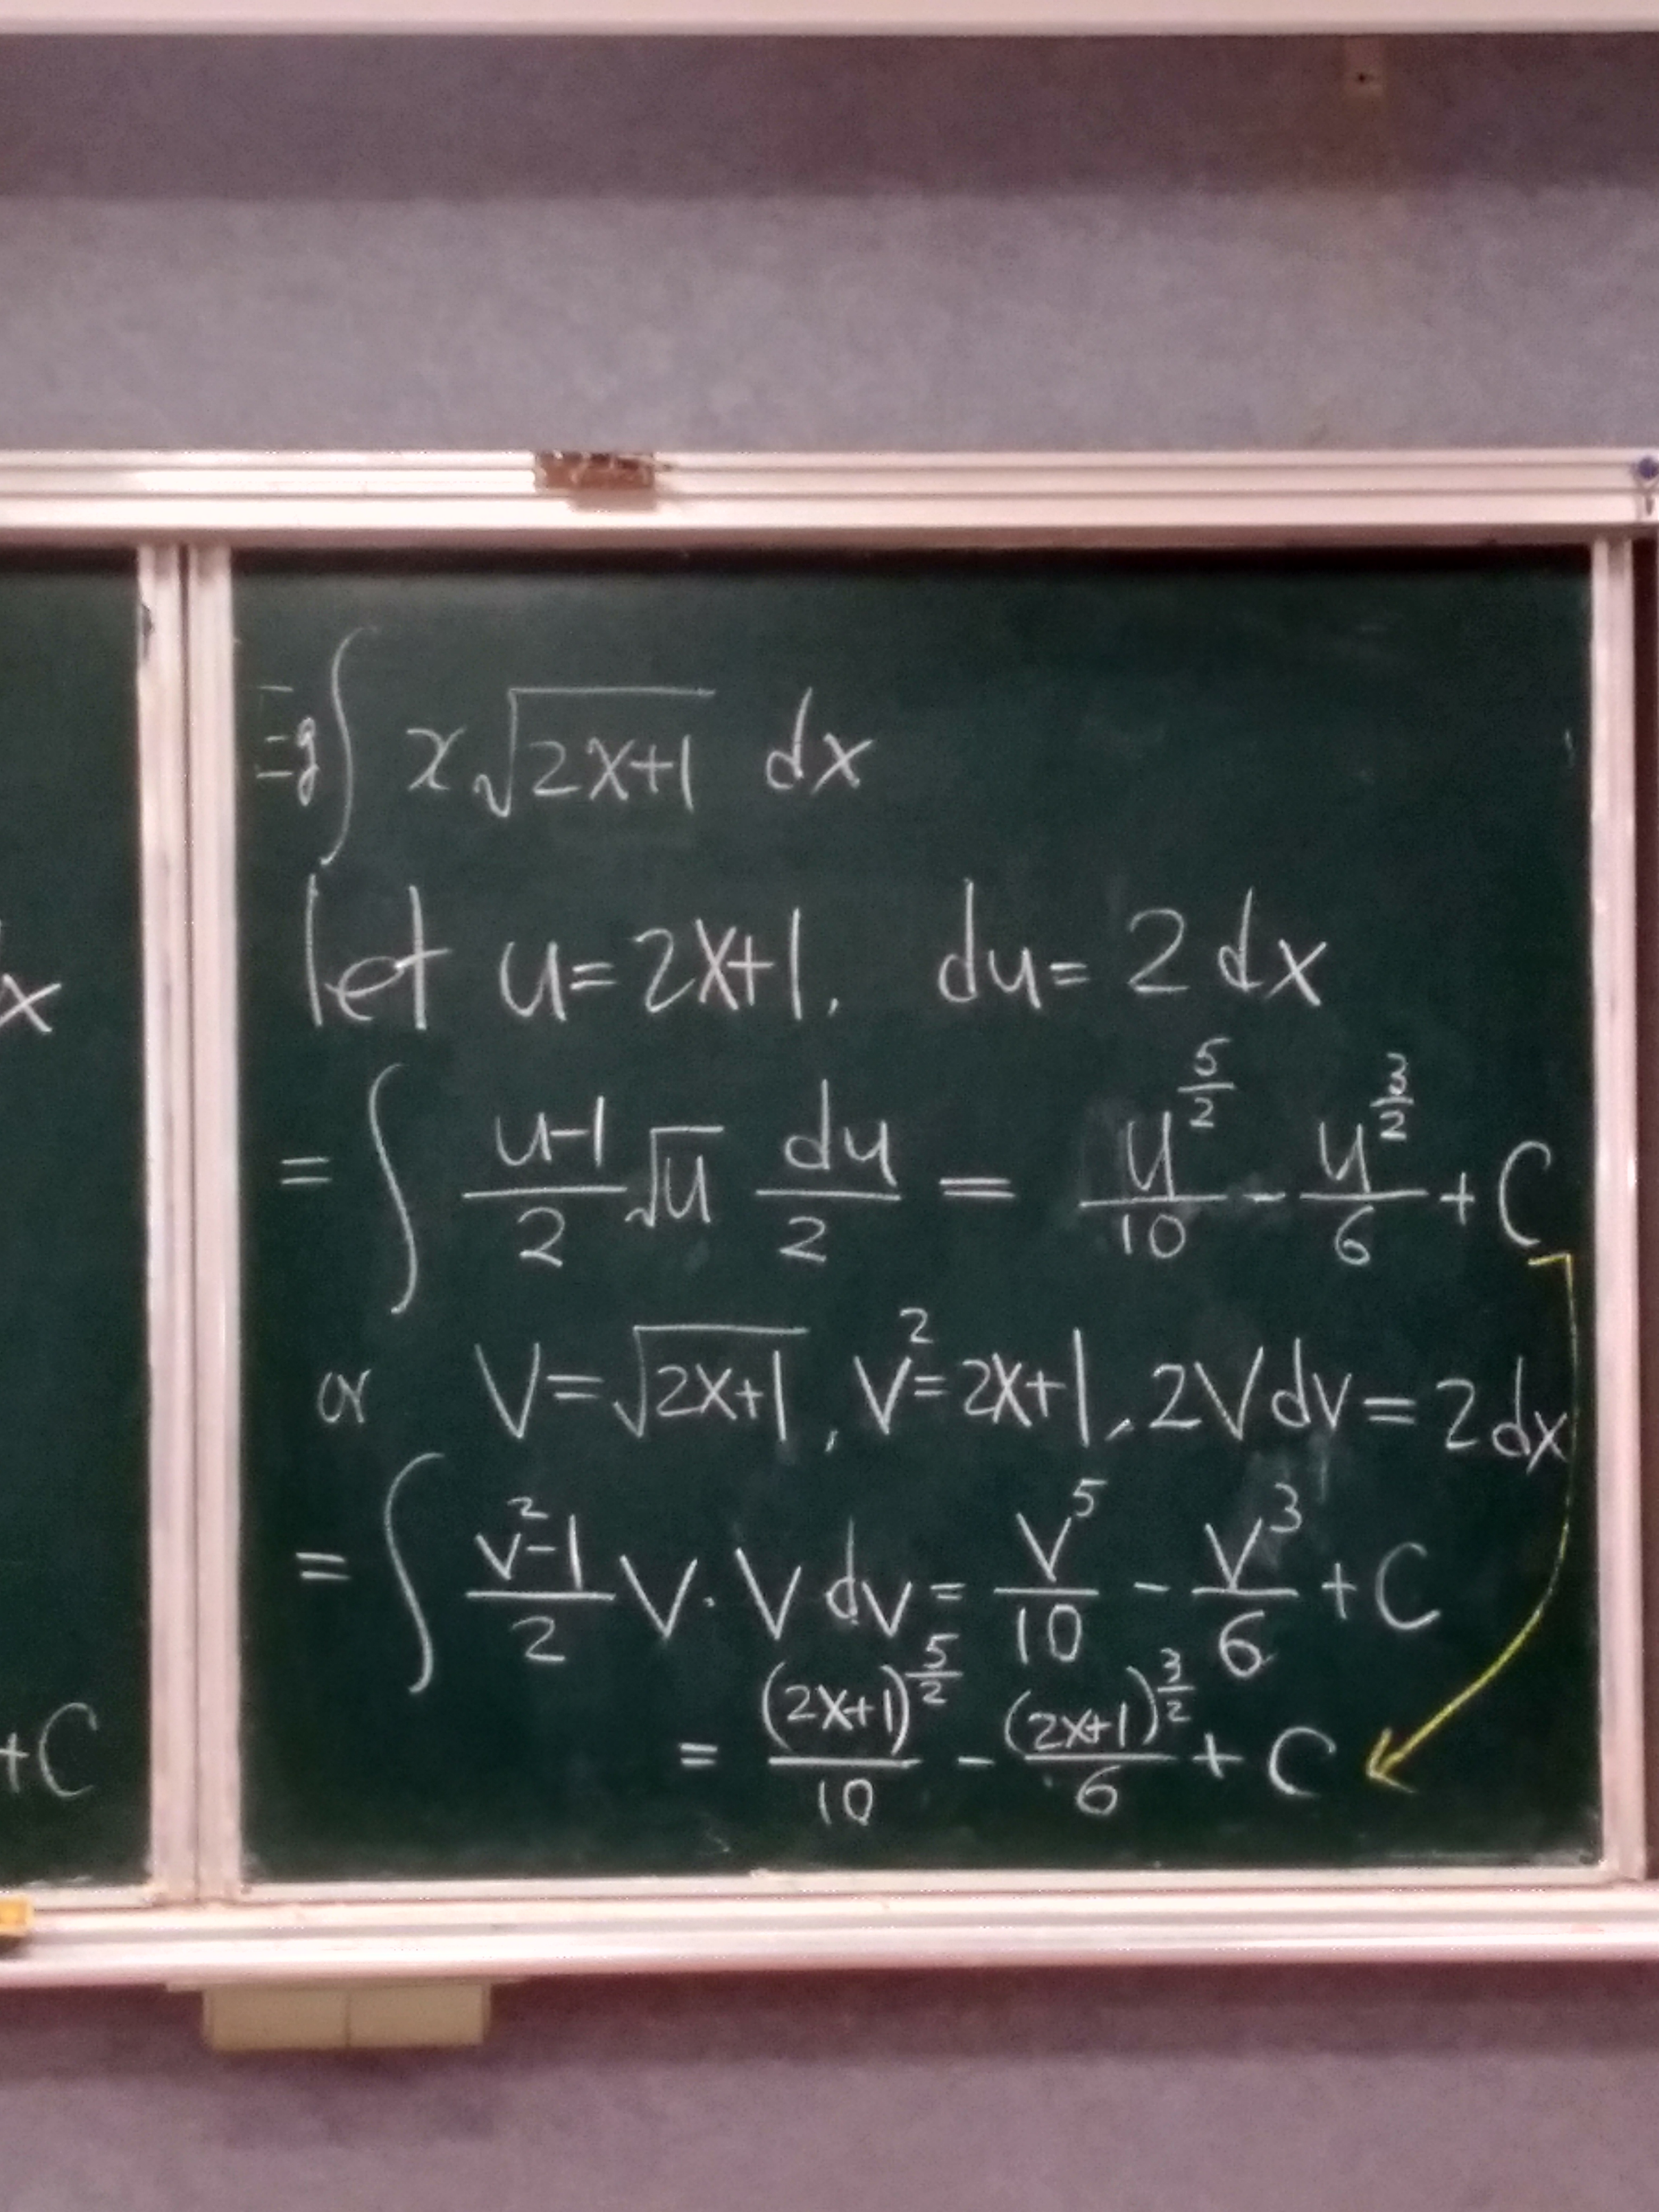 x
+C
Eg ∫ x√(2x+1) dx
let u=2x+1, du=2dx
= ∫ (u-1)/2 √u du/2 = u^(5/2)/10 - u^(3/2)/6 + C
or V=√(2x+1), V²=2x+1, 2Vdv=2dx
= ∫ (v²-1)/2 V·V dv = V⁵/10 - V³/6 + C
= (2x+1)^(5/2)/10 - (2x+1)^(3/2)/6 + C